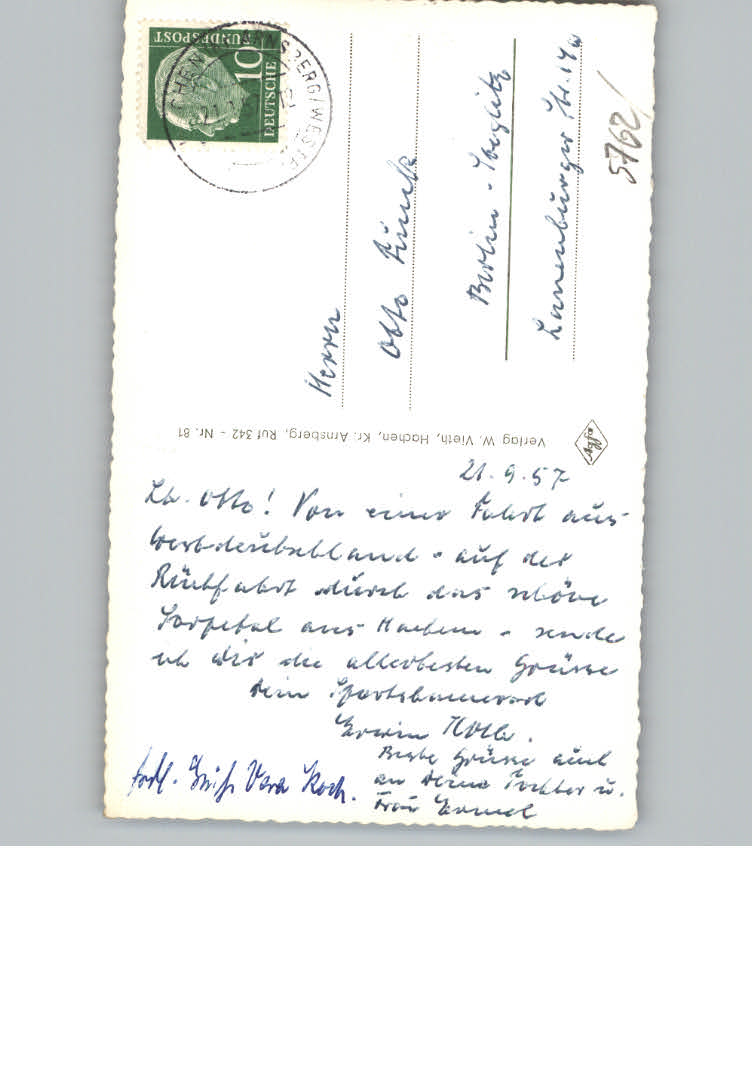 DEUTSCHE
BUNDESPOST
10
Herrn
Otto
Berlin - Steglitz
Str. 14a
5762
Verlag W. Vieth, Hachen, Kr. Arnsberg, Ruf 342 - Nr. 81
21.9.57
Lb. Otto! Von einer Fahrt aus
Westdeutschland - auf der
Rückfahrt durch das schöne
Sorpetal aus Hachen - sende
ich Dir die allerbesten Grüsse
Dein Sportskamerad
Erwin
Beste Grüsse auch
an Deine Tochter u.
Frau
Vera Koch.